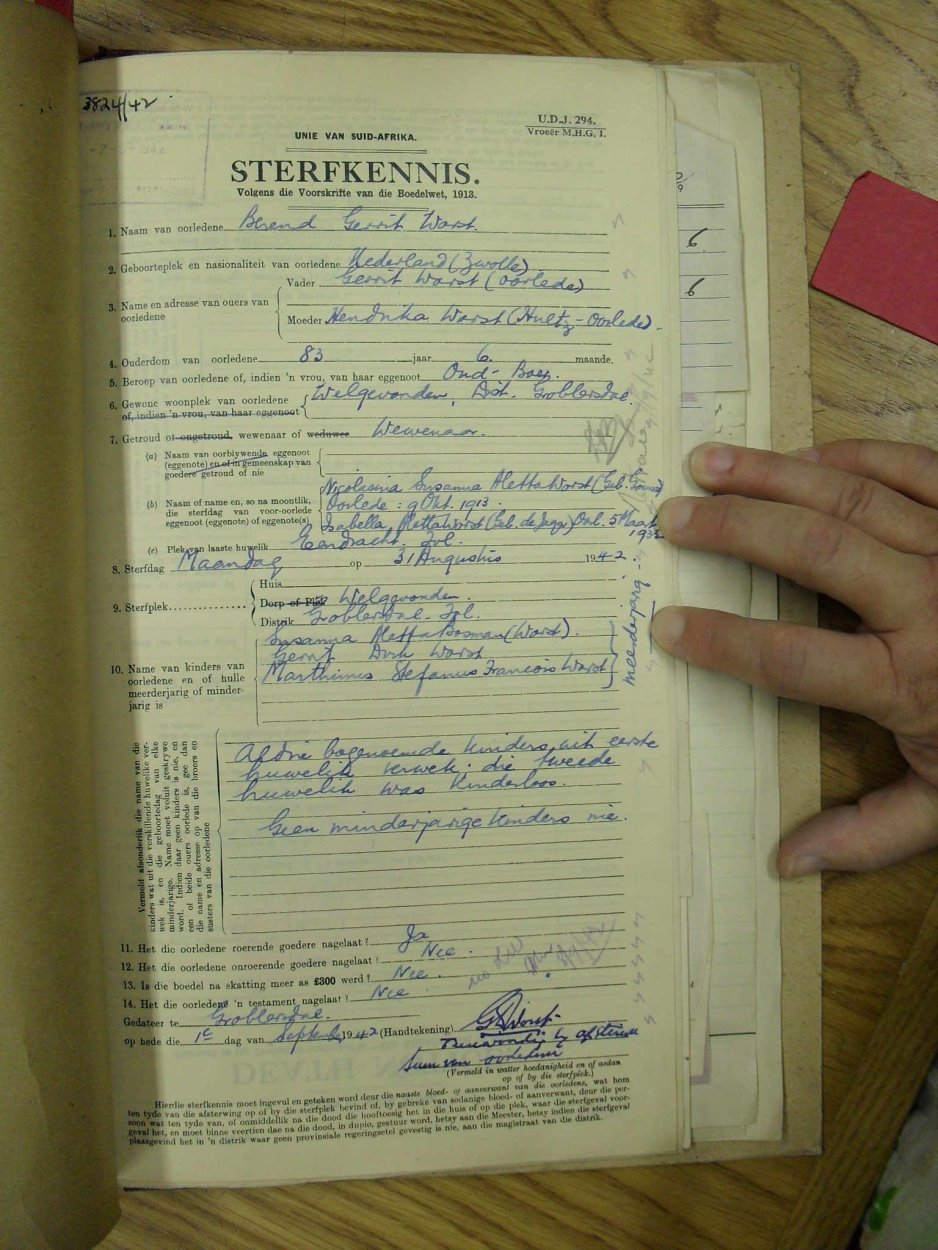 3824/42
U.D.J. 294.
Vroeër M.H.G. 1.
UNIE VAN SUID-AFRIKA.
STERFKENNIS.
Volgens die Voorskrifte van die Boedelwet, 1913.
1. Naam van oorledene Berend Gerrit Worst
2. Geboorteplek en nasionaliteit van oorledene Nederland (Zwolle)
3. Name en adresse van ouers van oorledene
Vader Gerrit Worst (Oorlede)
Moeder Hendrika Worst (Hultz - Oorlede).
4. Ouderdom van oorledene 83 jaar 6 maande.
5. Beroep van oorledene of, indien 'n vrou, van haar eggenoot Oud-Boer.
6. Gewone woonplek van oorledene of, indien 'n vrou, van haar eggenoot
Welgevonden, Dist. Groblersdal.
7. Getroud of ongetroud, wewenaar of weduwee Wewenaar.
(a) Naam van oorblywende eggenoot (eggenote) en of in gemeenskap van goedere getroud of nie
(b) Naam of name en, so na moontlik, die sterfdag van voor-oorlede eggenoot (eggenote) of eggenote(s)
Nicolasina Susanna Aletta Worst (Geb. Gouws)
Oorlede: 9 Okt. 1913
Isabella Aletta Worst (Geb. de Jager) Oorl. 5 Maart
(c) Plek van laaste huwelik Eendracht, Tvl.
8. Sterfdag Maandag op 31 Augustus 1942.
9. Sterfplek
Huis
Dorp of Plek Welgevonden.
Distrik Groblersdal. Tvl.
10. Name van kinders van oorledene en of hulle meerderjarig of minderjarig is
Susanna Aletta Bosman (Worst).
Gerrit Dirk Worst
Marthinus Stefanus Francois Worst
meerderjarig
Vermeld afsonderlik die name van die kinders wat uit die verskillende huwelike verwek is, en die geboortedag van elke minderjarige. Name moet voluit geskrywe word. Indien daar geen kinders is nie, en een of beide ouers oorlede is, gee dan die name en adresse op van die broers en susters van die oorledene
Al drie bogenoemde kinders uit eerste
huwelik verwek; die tweede
huwelik was kinderloos.
Geen minderjarige kinders nie.
11. Het die oorledene roerende goedere nagelaat? Ja
12. Het die oorledene onroerende goedere nagelaat? Nee.
13. Is die boedel na skatting meer as £300 werd? Nee.
14. Het die oorledene 'n testament nagelaat? Nee
Gedateer te Groblersdal.
op hede die 1e dag van September 1942 (Handtekening) G D Worst
Teenwoordig by afsterwe
Seun van oorledene
(Vermeld in watter hoedanigheid en of aldan op of by die sterfplek.)
Hierdie sterfkennis moet ingevul en geteken word deur die naaste bloed- of aanverwant van die oorledene, wat hom
ten tyde van die afsterwing op of by die sterfplek bevind of, by gebreke van sodanige bloed- of aanverwant, deur die per-
soon wat ten tyde van, of onmiddellik na die dood die hooftoesig het in die huis of op die plek, waar die sterfgeval voor-
geval het, en moet binne veertien dae na die dood, in duplo, gestuur word, betsy aan die Meester, betsy indien die sterfgeval
plaasgevind het in 'n distrik waar geen provinsiale regeringsetel gevestig is nie, aan die magistraat van die distrik.